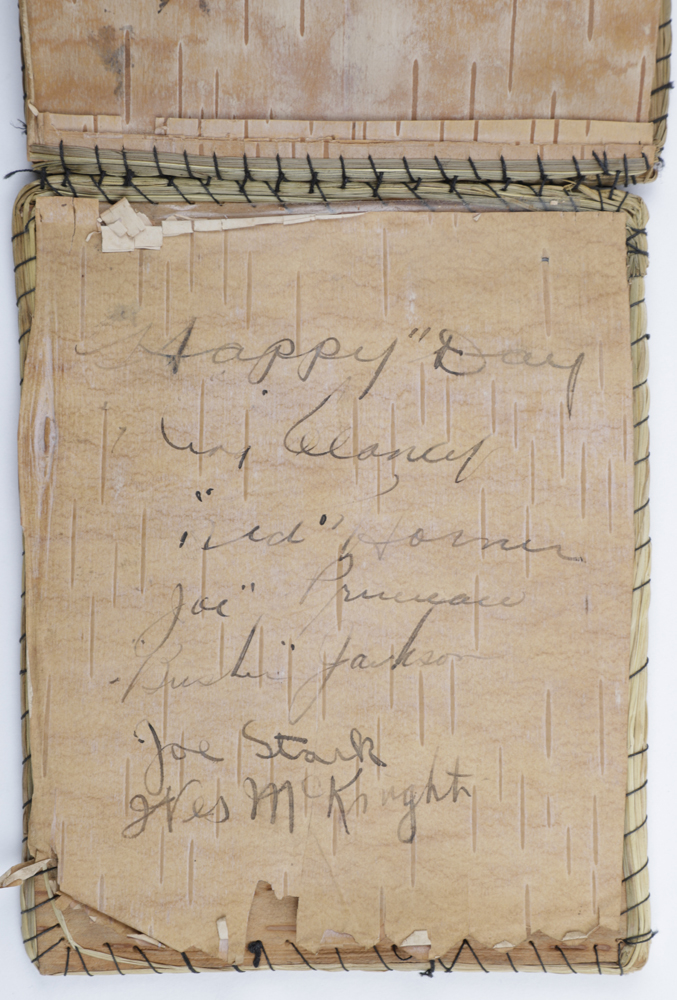 "Happy" Day
Clancy
"Red" Horner
"Joe" Primeau
"Busher" Jackson
Joe Stark
Wes McKnight